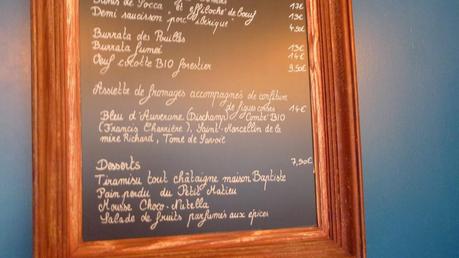 de Socca et effiloché de bœuf 13€
Demi saucisson porc "ibérique" 4,50€
Burrata des Pouilles 13€
Burrata fumée 14€
Oeuf cocotte BIO forestier 9,50€
Assiette de fromages accompagnés de confiture
de figues corses 14€
Bleu d'Auvergne (Dischamp) Comté BIO
(Francis Charrière), Saint-Marcellin de la
mère Richard, Tome de Savoie
Desserts 7,90€
Tiramisu tout châtaigne maison Baptiste
Pain perdu du Petit Matieu
Mousse Choco-Nutella
Salade de fruits parfumés aux épices